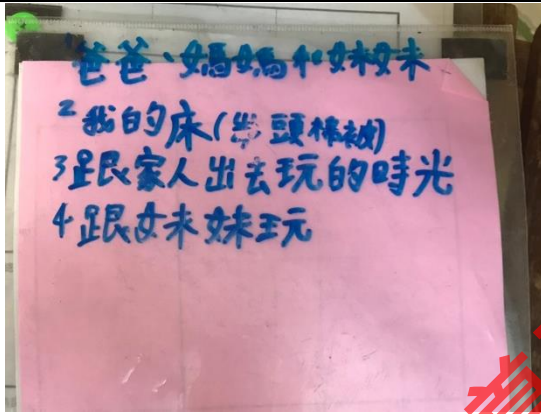 1爸爸、媽媽和妹妹
2我的床( 頭棉被)
3跟家人出去玩的時光
4跟妹妹玩